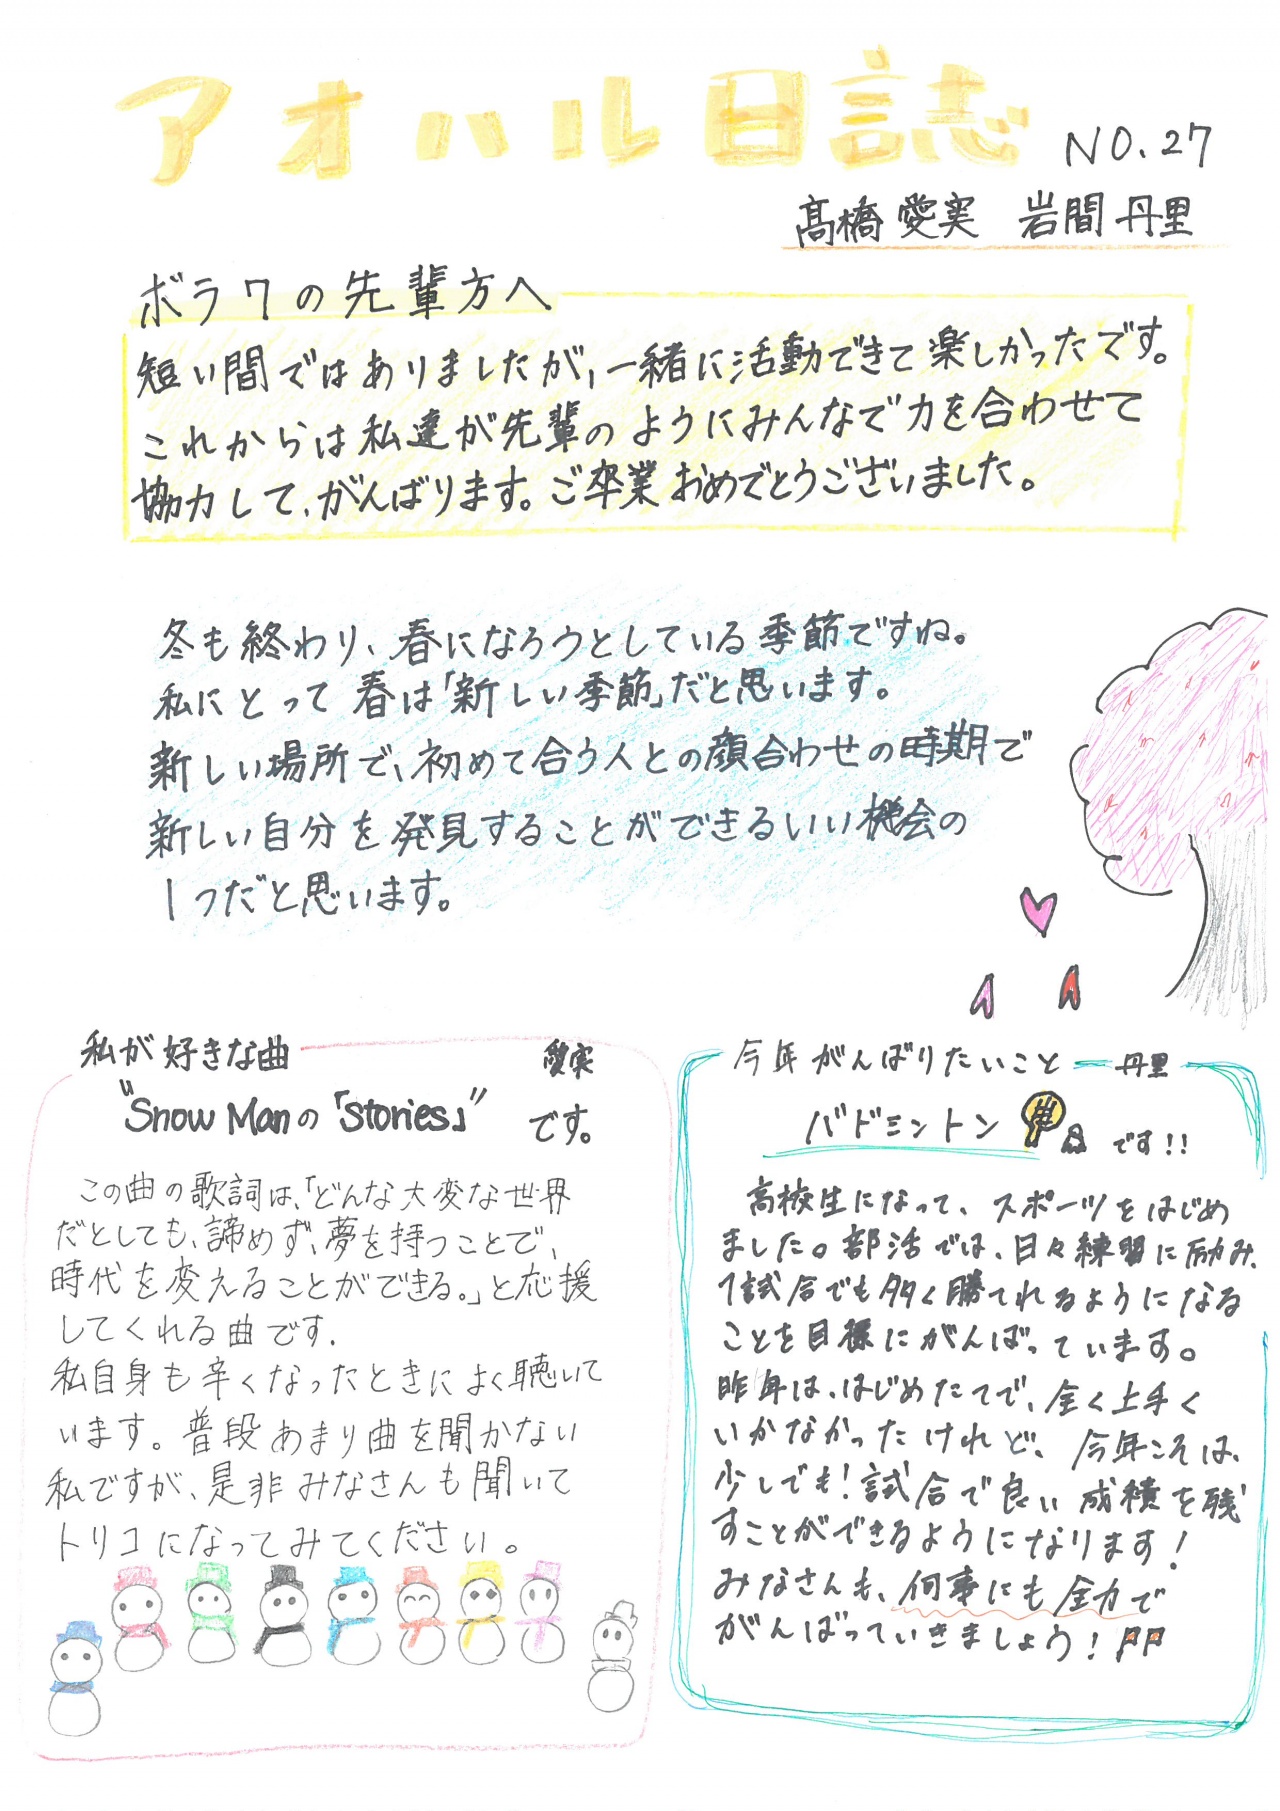 アオハル日誌
NO.27
髙橋愛実 岩間丹里
ボラワの先輩方へ
短い間ではありましたが、一緒に活動できて楽しかったです。
これからは私達が先輩のようにみんなで力を合わせて
協力して、がんばります。ご卒業おめでとうございました。
冬も終わり、春になろうとしている季節ですね。
私にとって春は「新しい季節」だと思います。
新しい場所で、初めて合う人との顔合わせの時期で
新しい自分を発見することができるいい機会の
1つだと思います。
私が好きな曲 愛実
"Snow Manの「Stories」"です。
この曲の歌詞は、「どんな大変な世界
だとしても、諦めず、夢を持つことで、
時代を変えることができる。」と応援
してくれる曲です.
私自身も辛くなったときによく聴いて
います。普段あまり曲を聞かない
私ですが、是非みなさんも聞いて
トリコになってみてください。
今年がんばりたいこと 丹里
バドミントン です!!
高校生になって、スポーツをはじめ
ました。部活では、日々練習に励み、
1試合でも多く勝てれるようになる
ことを目標にがんばっています。
昨年は、はじめたてで、全く上手く
いかなかったけれど、今年こそは、
少しでも!試合で良い成績を残
すことができるようになります!
みなさんも、何事にも全力で
がんばっていきましょう!